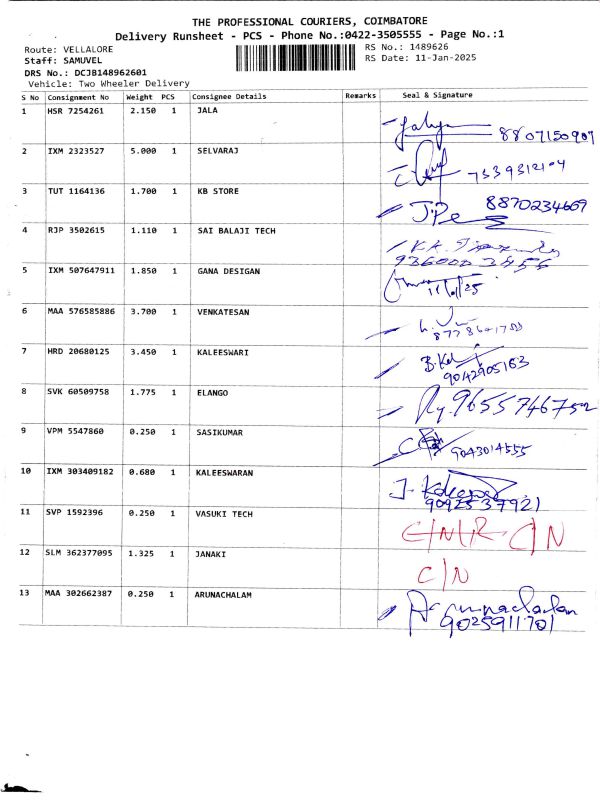 THE PROFESSIONAL COURIERS, COIMBATORE
Delivery Runsheet - PCS - Phone No.:0422-3505555 - Page No.:1
Route: VELLALORE
RS No.: 1489626
Staff: SAMUVEL
RS Date: 11-Jan-2025
DRS No.: DCJB148962601
Vehicle: Two Wheeler Delivery
S No Consignment No Weight PCS Consignee Details Remarks Seal & Signature
1 HSR 7254261 2.150 1 JALA
8807150907
2 IXM 2323527 5.000 1 SELVARAJ
7339312104
3 TUT 1164136 1.700 1 KB STORE
8870234669
4 RJP 3502615 1.110 1 SAI BALAJI TECH
9360003456
5 IXM 507647911 1.850 1 GANA DESIGAN
6 MAA 576585886 3.700 1 VENKATESAN
7 HRD 20680125 3.450 1 KALEESWARI
9042905163
8 SVK 60509758 1.775 1 ELANGO
9 VPM 5547860 0.250 1 SASIKUMAR
9043014555
10 IXM 303409182 0.680 1 KALEESWARAN
9092537921
11 SVP 1592396 0.250 1 VASUKI TECH
12 SLM 362377095 1.325 1 JANAKI
C/N
13 MAA 302662387 0.250 1 ARUNACHALAM
Arunachalam
9025911701